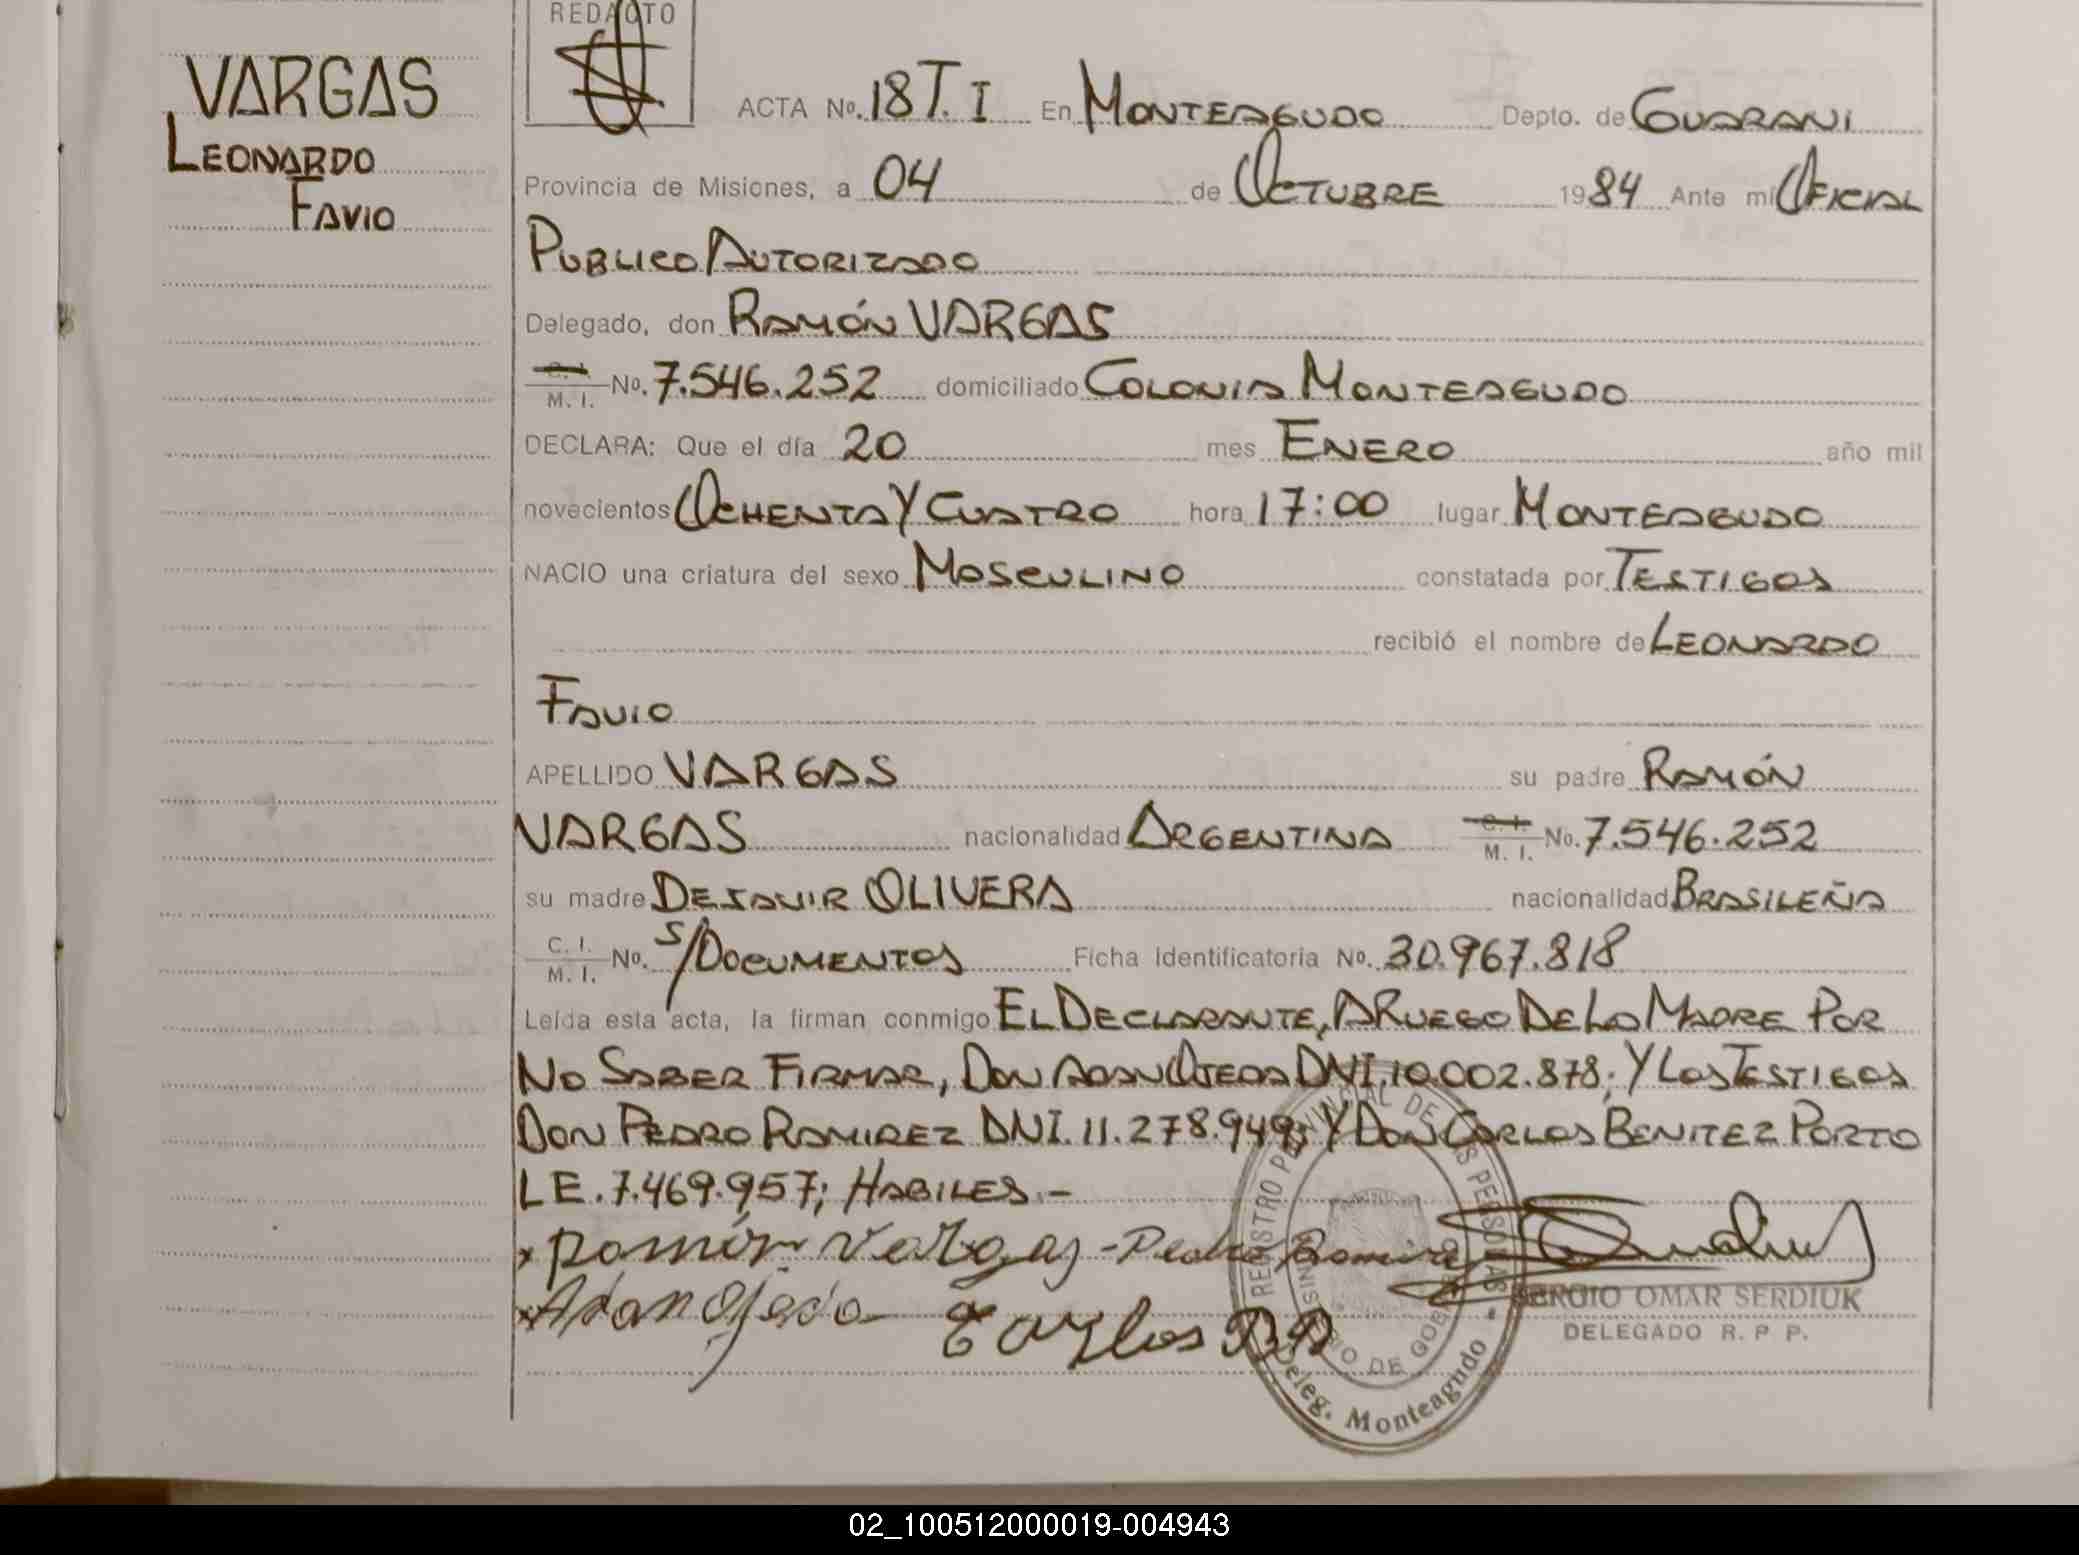 VARGAS
LEONARDO
FAVIO
REDACTO
ACTA No. 18 T. I En MONTEAGUDO Depto. de GUARANI
Provincia de Misiones, a 04 de OCTUBRE 1984 Ante mi OFICIAL
PUBLICO AUTORIZADO
Delegado, don RAMÓN VARGAS
C. I. M. I. No. 7.546.252 domiciliado COLONIA MONTEAGUDO
DECLARA: Que el día 20 mes ENERO año mil
novecientos OCHENTA Y CUATRO hora 17:00 lugar MONTEAGUDO
NACIO una criatura del sexo MASCULINO constatada por TESTIGOS
recibió el nombre de LEONARDO
FAVIO
APELLIDO VARGAS su padre RAMÓN
VARGAS nacionalidad ARGENTINA C. I. M. I. No. 7.546.252
su madre OLIVERA nacionalidad BRASILEÑA
C. I. M. I. No. S/DOCUMENTOS Ficha Identificatoria No. 30.967.818
Leída esta acta, la firman conmigo EL DECLARANTE, A RUEGO DE LA MADRE POR
NO SABER FIRMAR, DON ADAN OJEDA DNI. 10.002.878; Y LOS TESTIGOS
DON PEDRO RAMIREZ DNI. 11.278.949; Y DON CARLOS BENITEZ PORTO
LE. 7.469.957; HABILES.-
x Ramón Vargas - Pedro Ramirez
x Adan Ojeda Carlos BP
SERGIO OMAR SERDIUK
DELEGADO R. P. P.
REGISTRO PROVINCIAL DE LAS PERSONAS
MINISTERIO DE GOBIERNO
Deleg. Monteagudo
02_100512000019-004943